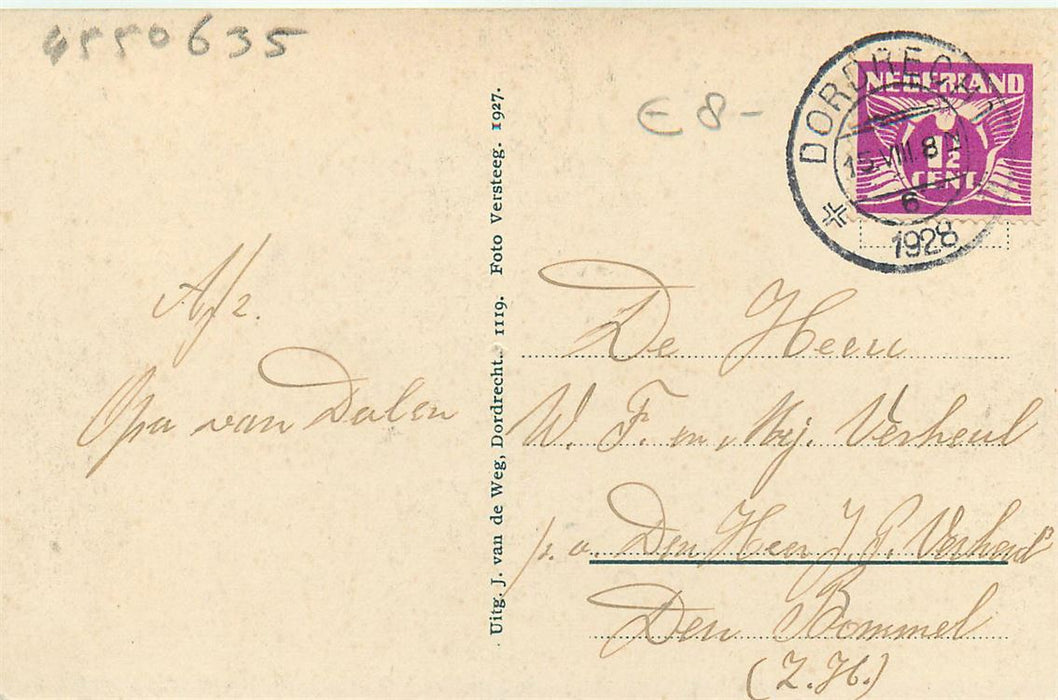 4550635
€ 8-
DORDRECHT
15.VIII.8 N
6
1928
NEDERLAND
1½
CENT
Afz.
Opa van Dalen
Uitg. J. van de Weg, Dordrecht. 1119. Foto Versteeg. 1927.
De Heeren
W. F. en Mej. Verheul
p.a. Den Heer J. P. Verheul
Den Bommel
(Z.H.)